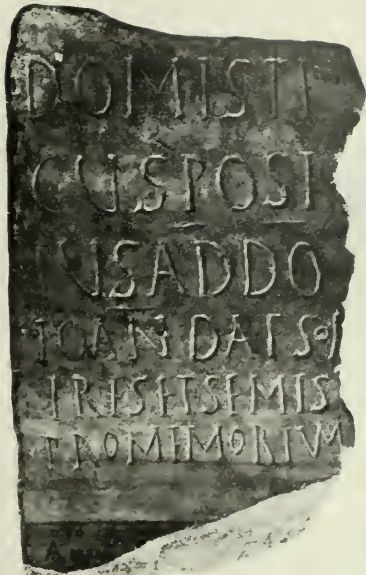 DOMISTI
CUSPOSI
IUSADDO
IOANDATSOL
TRISETSEMIS
TPOMIMORIVM